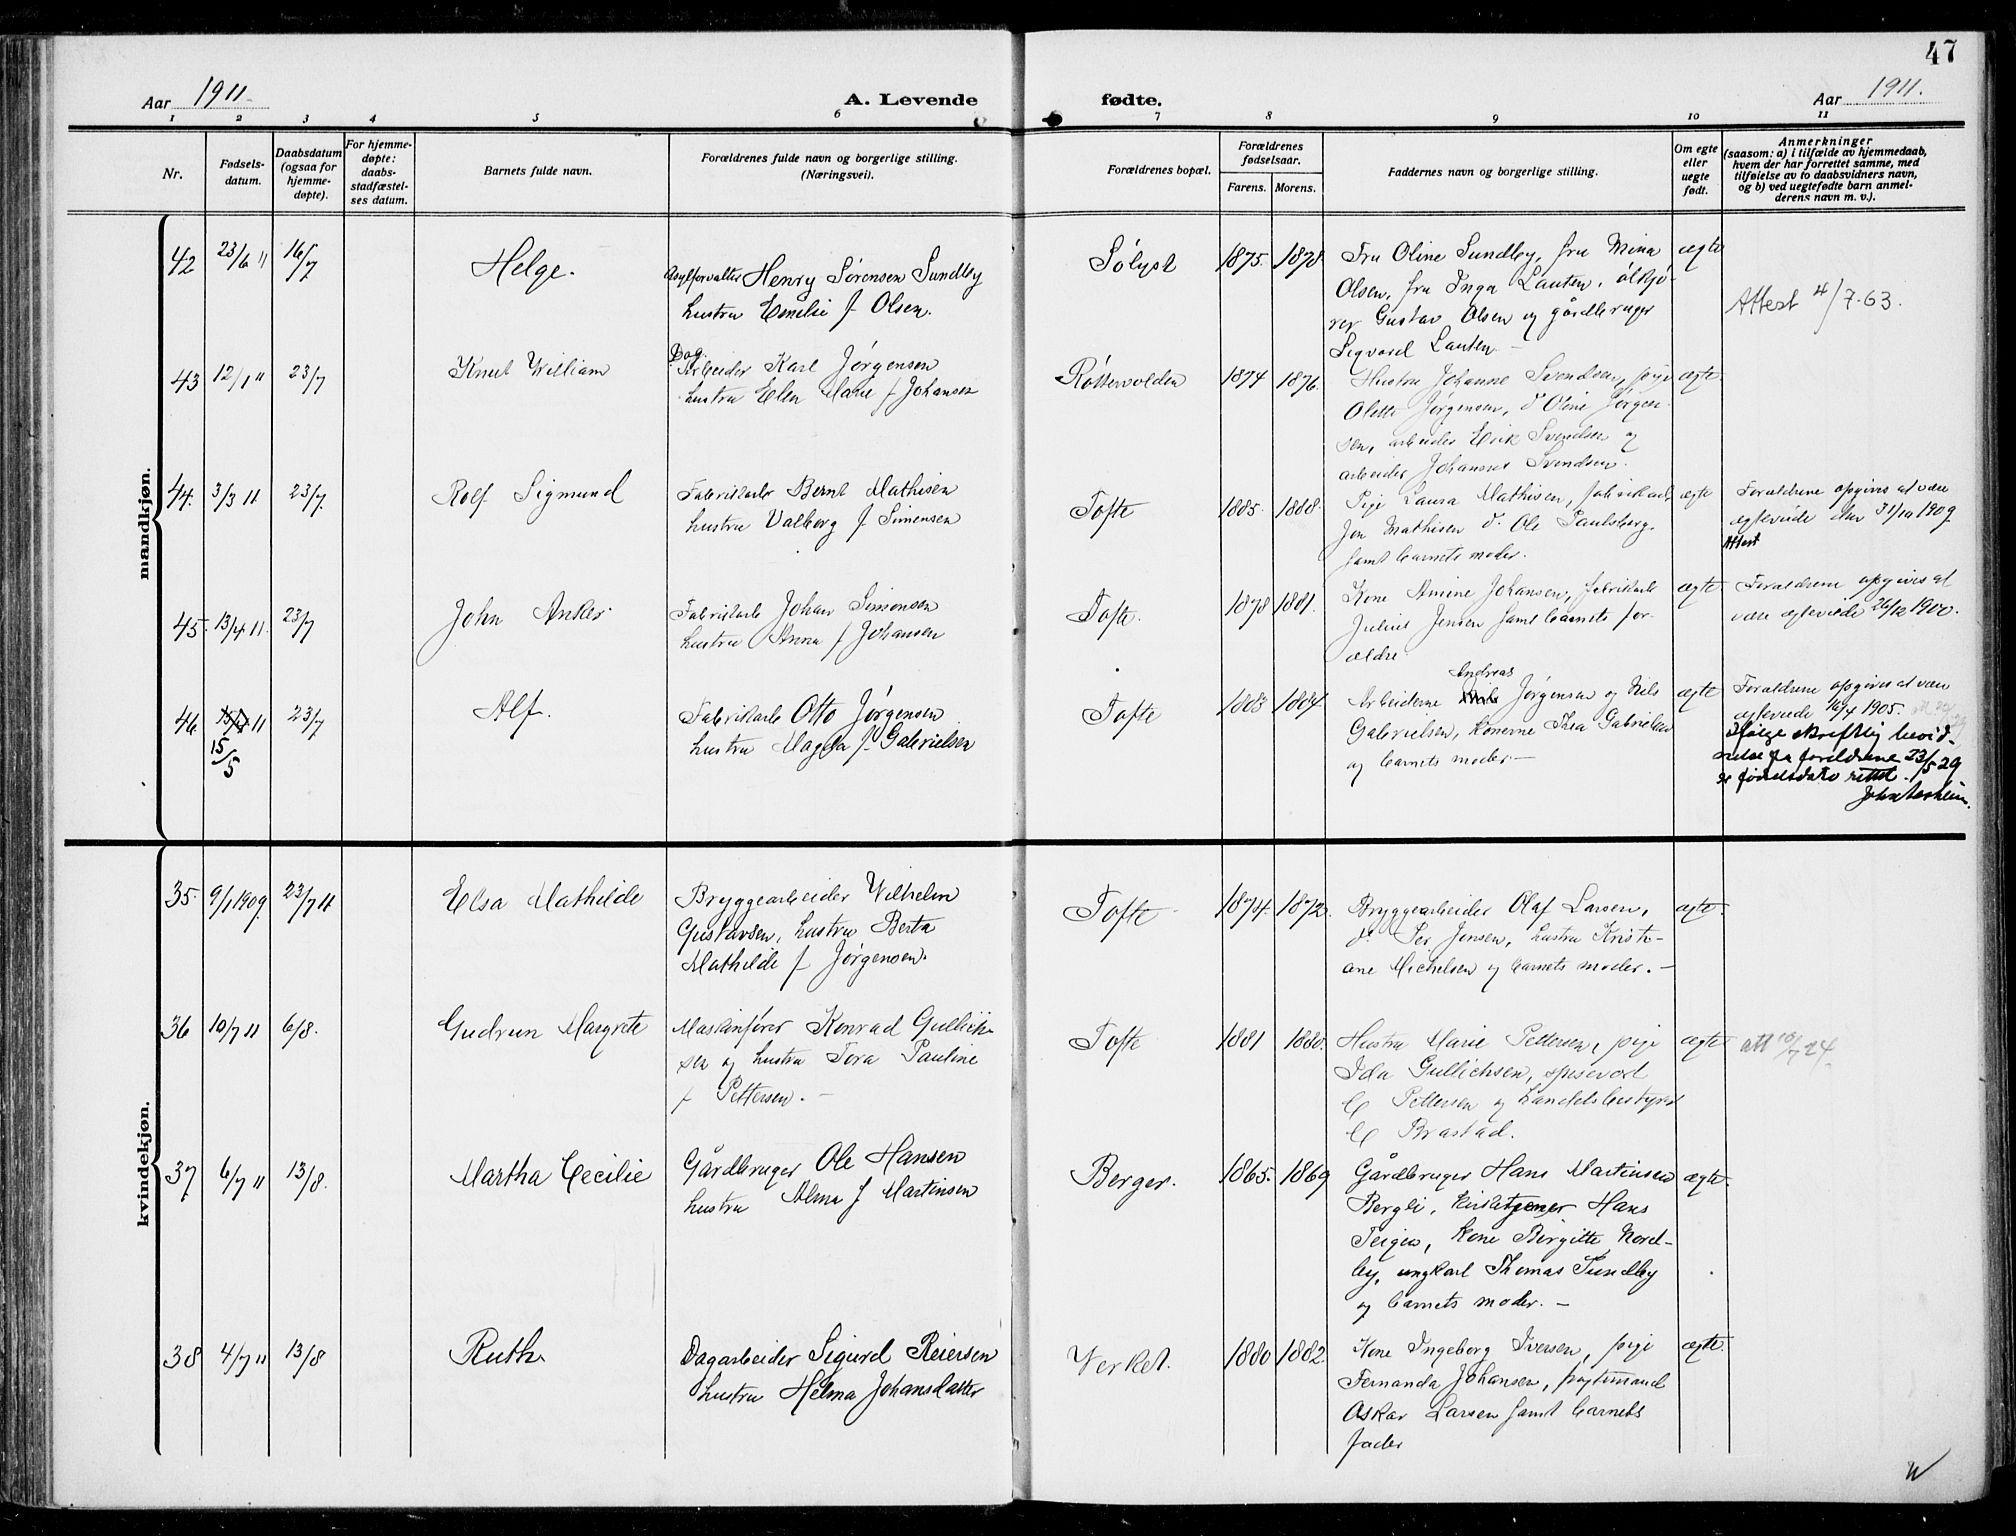 47
Aar 1911. A. Levende fødte. Aar 1911.
1 2 3 4 5 6 7 8 9 10 11
Nr.
Fødsels-
datum.
Daabsdatum
(ogsaa for
hjemme-
døpte).
For hjemme-
døpte:
daabs-
stadfæstel-
ses datum.
Barnets fulde navn.
Forældrenes fulde navn og borgerlige stilling.
(Næringsvei).
Forældrenes bopæl.
Forældrenes
fødselsaar.
Farens. Morens.
Faddernes navn og borgerlige stilling.
Om egte
eller
uegte
født.
Anmerkninger
(saasom: a) i tilfælde av hjemmedaab,
hvem der har forrettet samme, med
tilføielse av to daabsvidners navn,
og b) ved uegtefødte barn anmel-
derens navn m. v.).
mandkjøn.
42 23/6 11 16/7 Helge.
Asylforvalter Henry Sørensen Sundby
hustru Emilie f Olsen.
Sølyst 1875. 1878.
Fru Oline Sundby, fru Mina
Olsen, fru Inga Lauten, ølkjø-
rer Gustav Olsen og gårdbruger
Sigvard Lauten. –
ægte
Attest 4/7.63.
43 12/1 11 23/7 Knut William
Dag.
Arbeider Karl Jørgensen
hustru Elen Marie f Johansen
Røttenvolden 1874 1876.
Hustru Johanne Svendsen, pige
Olette Jørgensen, do Oline Jørgen-
sen, arbeider Erik Svendsen og
arbeider Johannes Svendsen.
ægte
44. 3/3 11 23/7. Rolf Sigmund
Fabrikarb Bernt Mathisen
hustru Valborg f Simensen
Tofte 1885. 1888.
Pige Laura Mathisen, fabrikarb
Jon Mathisen do Ole Paulsberg.
samt barnets moder.
ægte
Forældrene opgives at være
egteviede den 31/10 1909
Attest
45. 13/4 11. 23/7 John Anker
Fabrikarb Johan Simonsen
hustru Anna f Johansen
Tofte. 1878 1881.
Kone Amine Johansen, fabrikarb
Julius Jensen samt barnets for-
ældre.
ægte
Forældrene opgives at
være egteviede 26/12 1900.
46. 11 23/7 Alf.
15/5
Fabrikarb Otto Jørgensen
hustru Magda f. Gabrielsen
Tofte 1883 1884.
Andreas
Arbeiderne Jørgensen og Nils
Gabrielsen, konerne Thea Gabrielsen
og barnets moder. –
ægte
Forældrene opgives at være
egteviede 16/4 1905.
Ifølge skriftlig bevid-
nelse fra foreldrene 23/5 29
er fødselsdato rettet.
kvindekjøn.
35. 9/1 1909 23/7 11 Elsa Mathilde
Bryggearbeider Wilhelm
Gustavsen, hustru Berta
Mathilde f Jørgensen.
Tofte 1874. 1872.
Bryggearbeider Olaf Larsen,
do Per Jensen, hustru Kristi-
ane Michelsen og barnets moder. –
ægte.
36 10/7 11 6/8. Gudrun Margrete
Maskinfører Konrad Gullick-
sen og hustru Tora Pauline
f Pettersen. –
Tofte 1881 1880.
Hustru Marie Pettersen, pige
Ida Gullichsen, spisevert
C Pettersen og handelsbestyrer
C Brastad.
ægte
att 10/7 24.
37 6/7 11 13/8. Martha Cecilie
Gårdbruger Ole Hansen
hustru Alma f Martinsen
Berger. 1865. 1869
Gårdbruger Hans Martinsen
Bergli, kirketjener Hans
Teigen, kone Birgitte Nord-
by, ungkarl Thomas Sundby
og barnets moder. –
ægte.
38 4/7 11 13/8 Ruth
Dagarbeider Sigurd Reiersen
hustru Helma Johansdatter
Verket. 1880 1882.
Kone Ingeborg Iversen, pige
Fernanda Johansen, fyrtmand
Oskar Larsen samt barnets
fader
ægte.